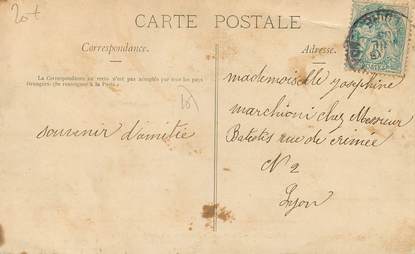 20+
CARTE POSTALE
Correspondance.
Adresse.
La Correspondance au verso n'est pas acceptée par tous les pays
étrangers. (Se renseigner à la Poste.)
mademoiselle yosephine
marchioni chez Messieur
souvenir d'amitée
rue de crimee
N 2
Lyon